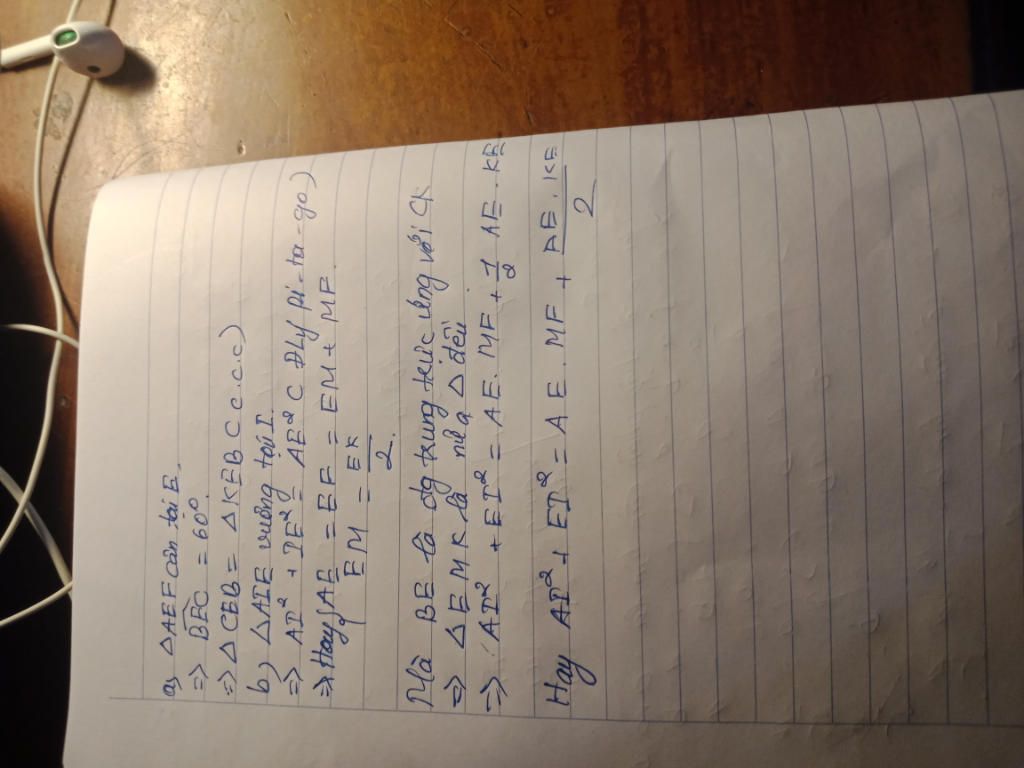 a) △AEF cân tại E.
=> BEC = 60°
=> △CEB = △KEB C c.c.c)
b) △AIE vuông tại I.
=> AI² + IE² = AE² C Đly Pi-ta-go)
=> Hay { AE = EF = EM + MF.
EM = EK/2.
Mà BE là đg trung trực ứng với CK
=> △EMK là nửa △ đều
=> AI² + EI² = AE. MF + 1/2 AE. KE
Hay AI² + EI² = AE. MF + AE. KE/2